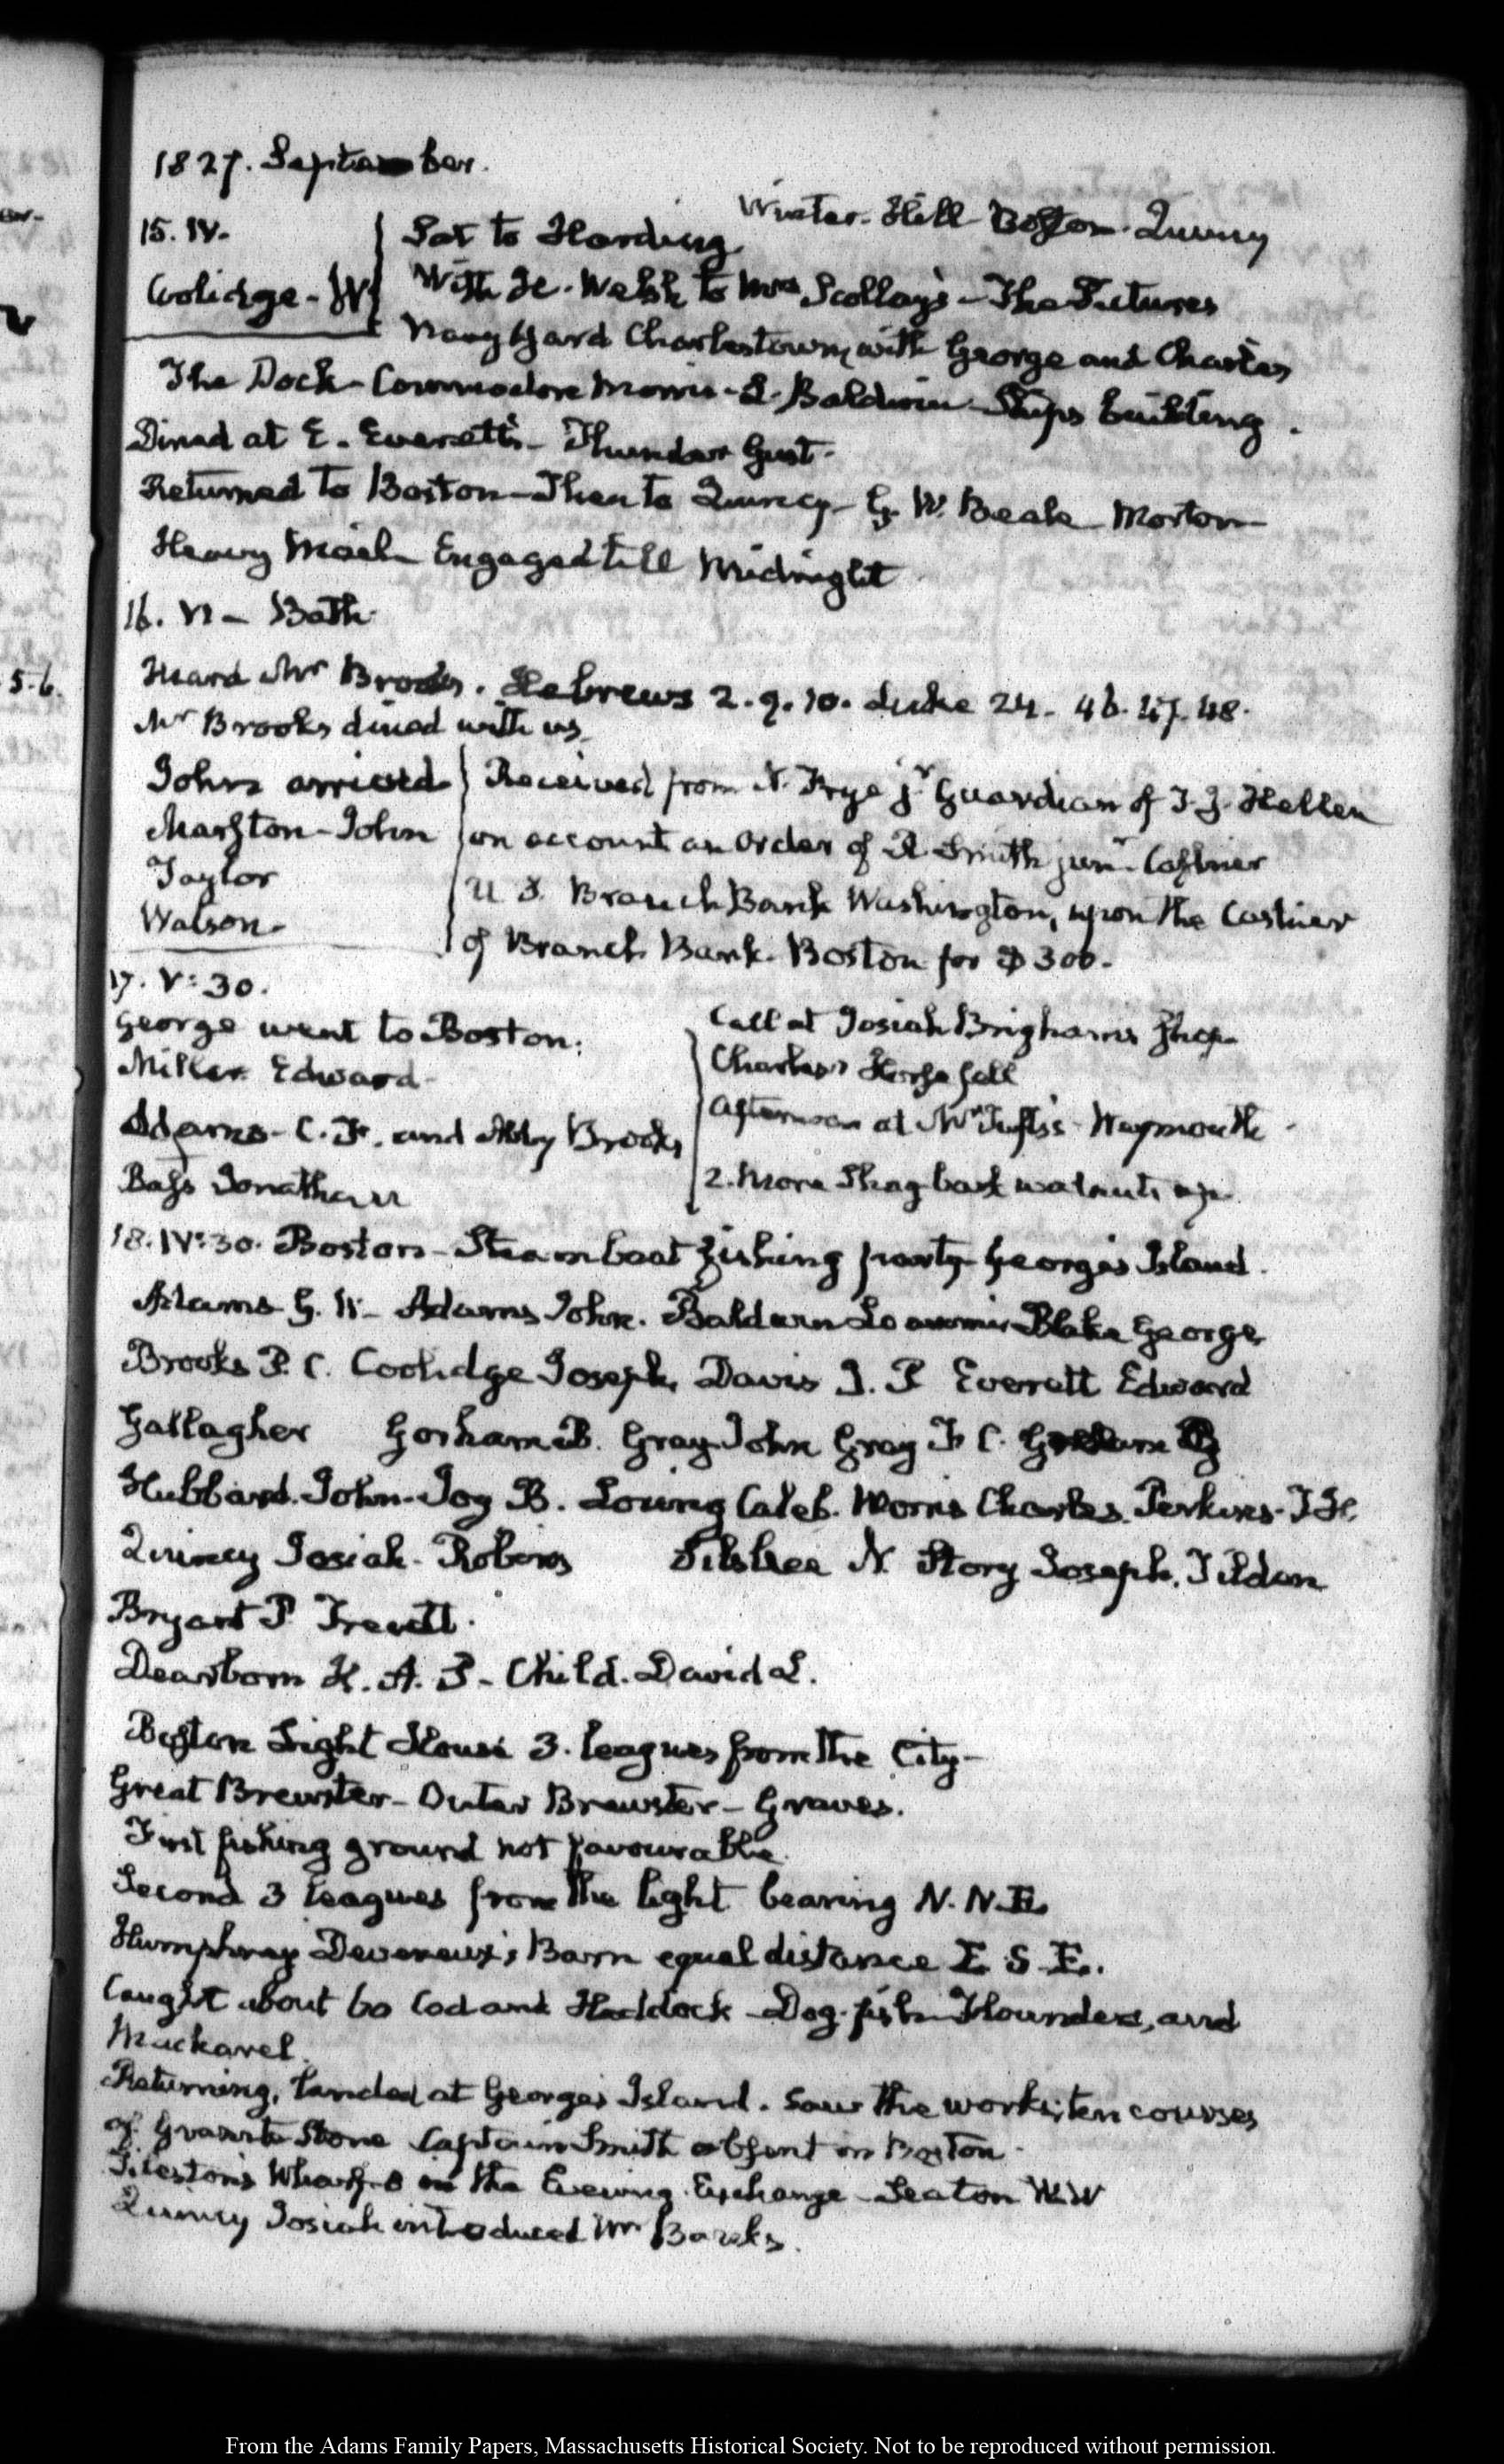 1827. September.
Winter Hill Boston. Quincy
15. IV. Sat to Harding
Coolidge - W With Th. Welsh to Mrs Scollay's - The Pictures
Navy Yard Charlestown, with George and Charles
The Dock - Commodore Morris - L. Baldwin - Ships building.
Dined at E. Everett's - Thunder Gust -
Returned to Boston - Then to Quincy - G. W. Beale Morton
Heavy Mail Engaged till Midnight
16. VI - Bath
Heard Mr Brooks. Hebrews 2. 9. 10. Luke 24. 46. 47. 48.
Mr Brooks dined with us.
John arrived Received from N. Frye jr Guardian of J. J. Hellen
Marston - John on account an Order of R Smith junr Cashier
Taylor U. S. Branch Bank Washington, upon the Cashier
Watson - of Branch Bank. Boston for $ 300.
17. V: 30.
George went to Boston: Call at Josiah Brigham's Shop
Miller Edward - Charles's Horse fell
Adams - C. F. and Abby Brooks Afternoon at Mr Tufts's Weymouth
Bass Jonathan 2. more Shagbark walnuts up.
18. IV: 30. Boston - Steamboat fishing party George's Island.
Adams G. W - Adams John. Baldwin Loammi Blake George
Brooks P. C. Coolidge Joseph, Davis J. P Everett Edward
Gallagher Gorham B. Gray John Gray F C.
Hubbard. John - Joy B. Loring Caleb. Morris Charles. Perkins - T H.
Quincy Josiah - Robins Silsbee N. Story Joseph. Tilden
Bryant P Trevett.
Dearborn H. A. S - Child. David L.
Boston Light House 3. leagues from the City -
Great Brewster - Outer Brewster - Graves.
First fishing ground not favourable.
Second 3 leagues from the light bearing N. N. E.
Humphrey Devereux's Barn equal distance E. S. E.
Caught about 60 Cod and Haddock - Dog-fish Flounders, and
Mackarel.
Returning, landed at George's Island. Saw the works; ten courses
of Granite Stone Captain Smith absent in Boston.
Tileston's Wharf 8 in the Evening. Exchange - Seaton W. W
Quincy Josiah introduced Mr Banks.
5. 6.
From the Adams Family Papers, Massachusetts Historical Society. Not to be reproduced without permission.